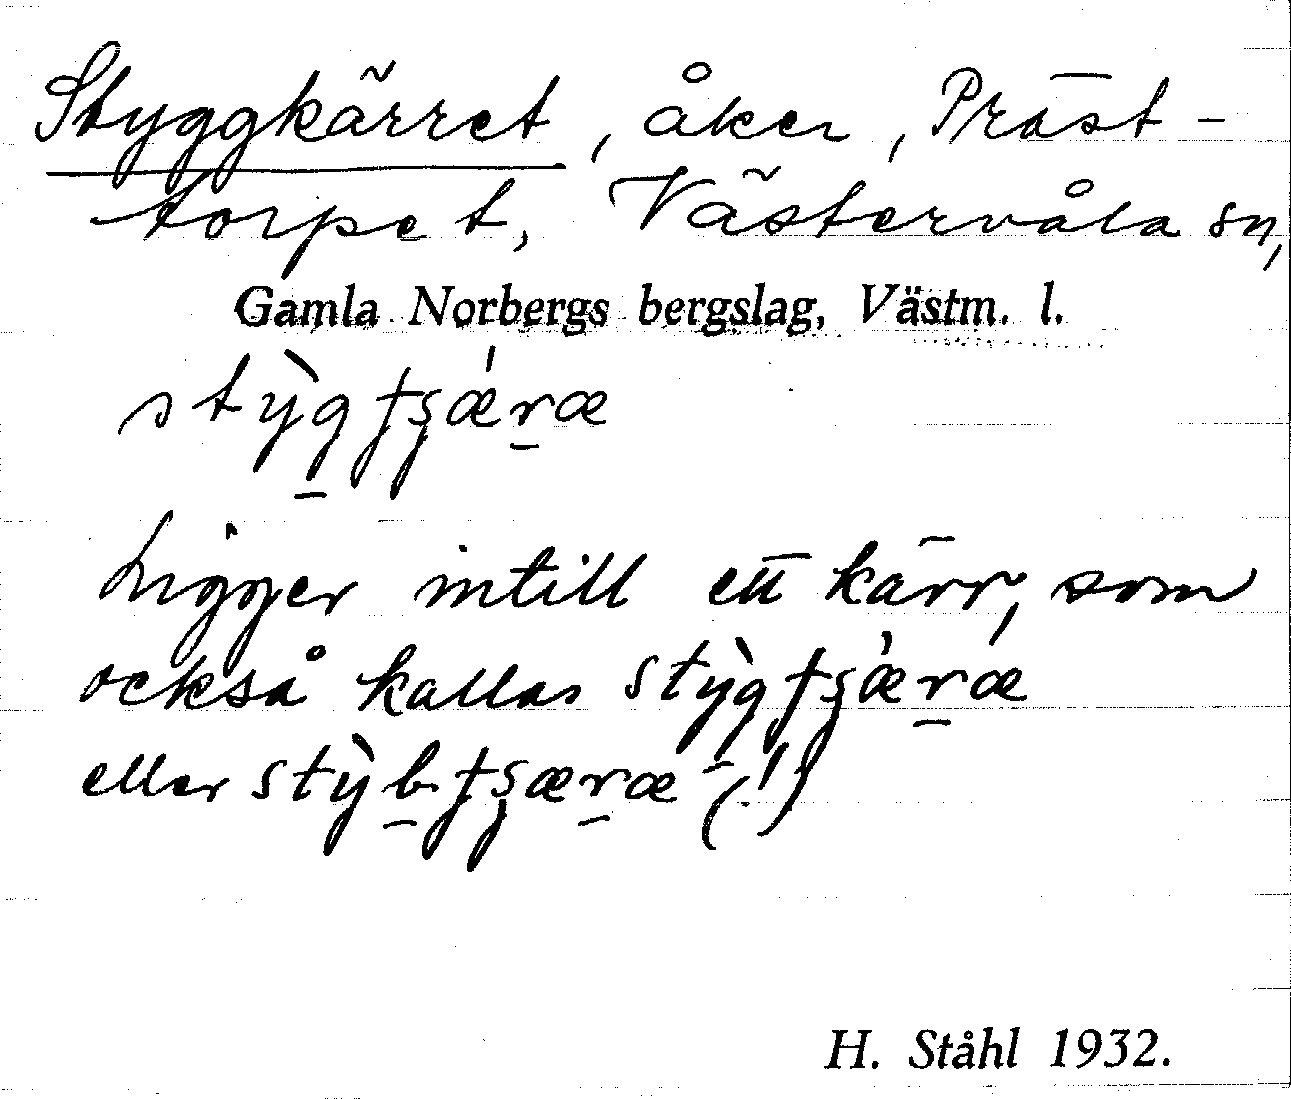 Styggkärret, åker, Präst-
torpet, Västervåla sn,
Gamla Norbergs bergslag, Västm. l.
stỳg̲ʈʂǽr̲æ
Ligger intill ett kärr, som
också kallas stỳg̲ʈʂǽr̲æ
eller stỳb̲ʈʂær̲æ (!)
H. Ståhl 1932.